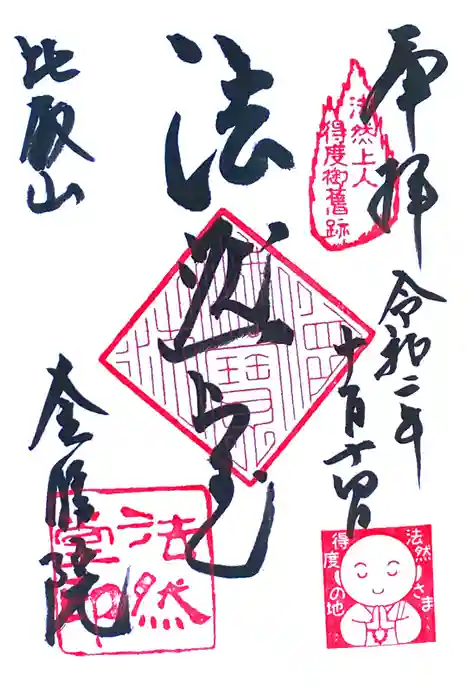 奉拝
法然上人
得度御舊跡
令和二年
十月十四日
法然さま
得度の地
法然上人
法然
堂印
比叡山
金勝院